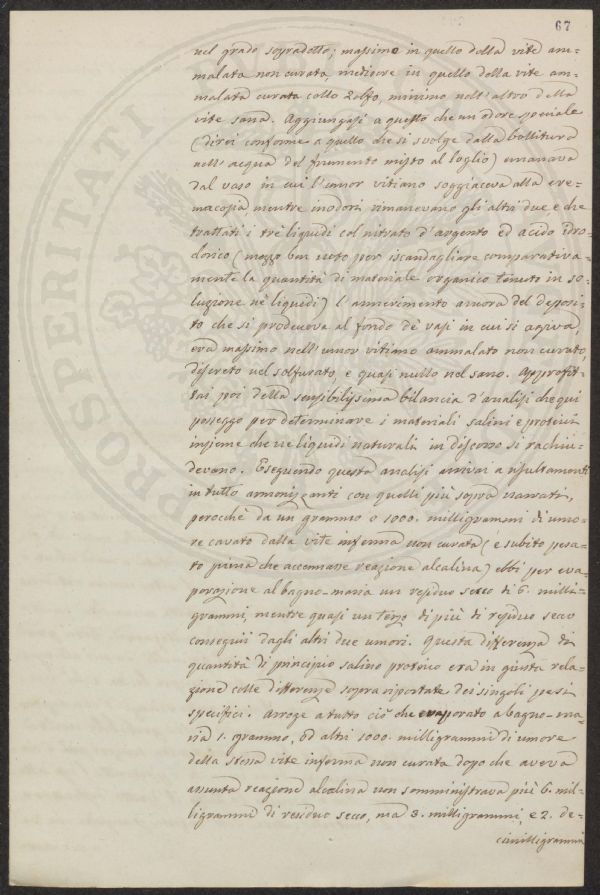 67
nel grado sopradetto; massimo in quello della vite am=
malata non curata, mediocre in quello della vite am=
malata curata collo Zolfo, minimo nell'altro della
vite sana. Aggiungasi a questo che un odore speciale
(direi conforme a quello che si svolge dalla bollitura
nell'acqua del frumento misto al loglio) emanava
dal vaso in cui l'umor vitiano soggiaceva alla cre=
macopia, mentre inodori rimanevano gli altri due, e che
trattati i tre liquidi col nitrato d'argento ed acido idro=
clorico (mezzo ben noto per iscandagliare comparativa=
mente la quantità di materiale organico tenuto in so=
luzione ne' liquidi) l'annerimento ancora del deposi=
to che si produceva al fondo de' vasi in cui si agiva,
era massimo nell'umor vitiano ammalato non curato,
discreto nel solfurato, e quasi nullo nel sano. Approfit=
tai poi della sensibilissima bilancia d'analisi che qui
posseggo per determinare i materiali salini e proteici
insieme che ne liquidi naturali in discorso si rachiu=
devano. Eseguendo questa analisi arrivai a risultamenti
in tutto armonizzanti con quelli più sopra narrati,
perochè da un grammo o 1000. milligrammi di umo=
re cavato dalla vite inferma non curata (e subito pesa=
to prima che accennasse reazione alcalina) ebbi per eva=
porazione al bagno-maria un residuo secco di 6. milli=
grammi, mentre quasi un terzo di più di residuo secco
conseguii dagli altri due umori. Questa differenza di
quantità di principio salino proteico era in giusta rela=
zione colle differenze sopra riportate dei singoli pesi
specifici. Arroge a tutto ciò che evaporato a bagno-ma=
ria 1. grammo, od altri 1000. milligrammi di umore
della stessa vite inferma non curata dopo che aveva
assunta reazione alcalina non somministrava più 6. mil=
ligrammi di residuo secco, ma 3. milligrammi, e 2. de=
cimilligrammi
PROSPERITATI